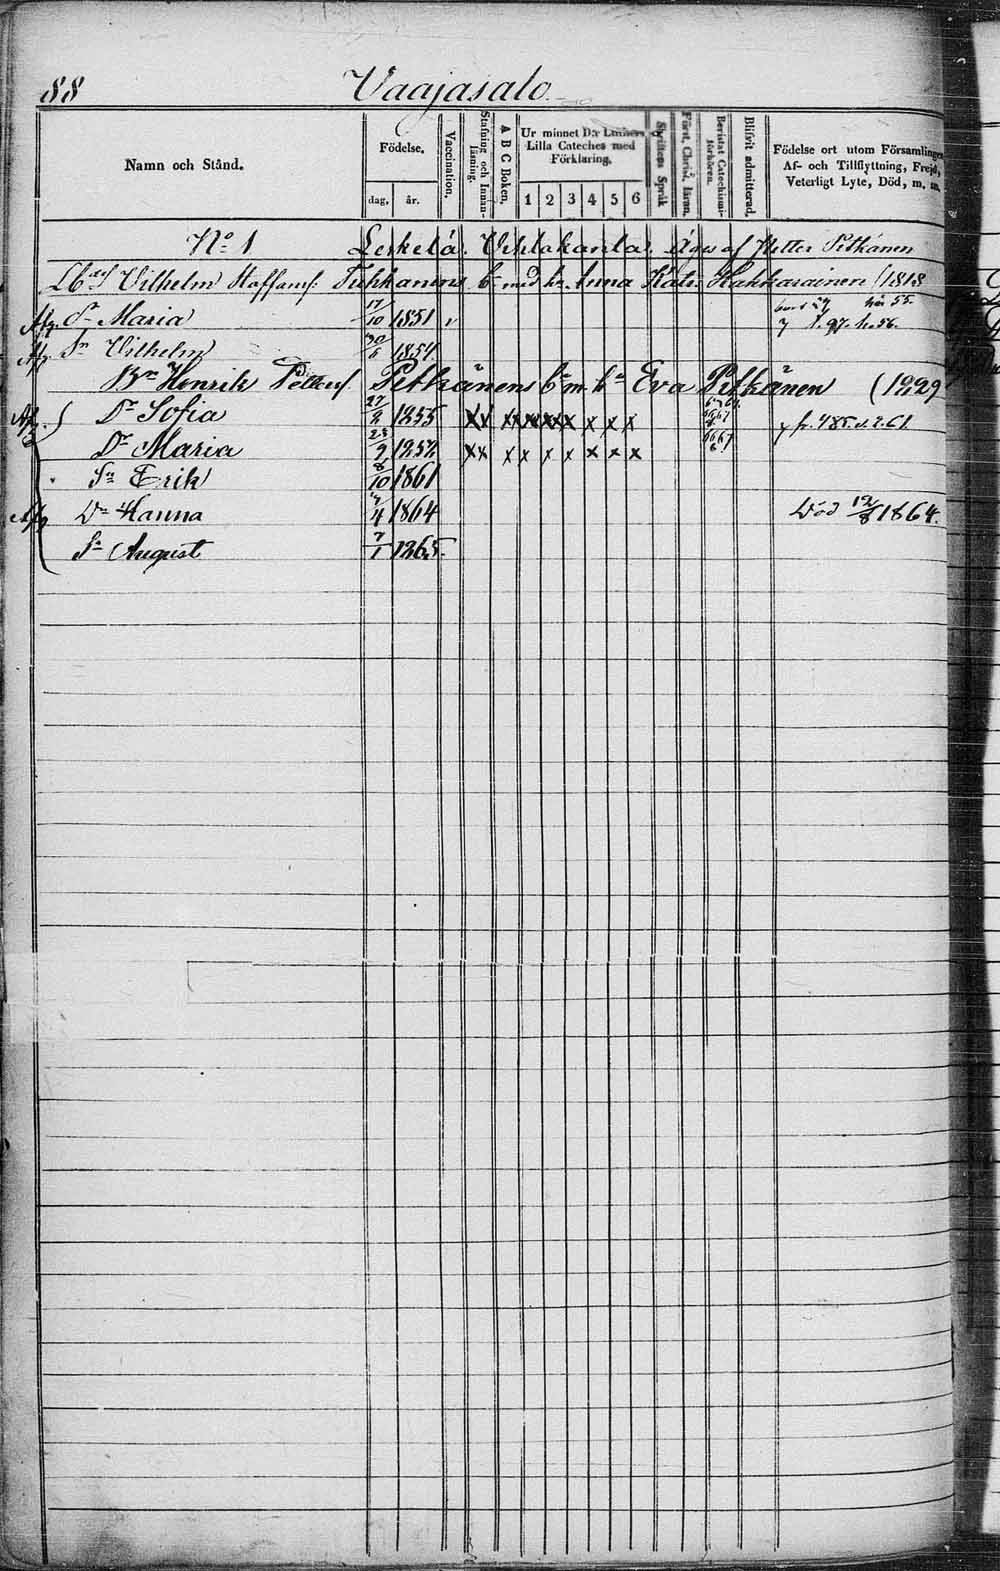 88 Vaajasalo
Namn och Stånd. Födelse. dag, år. Vaccination. Stafning och Innanläsning. A B C Boken, Ur minnet D:r Luthers Lilla Cateches med Förklaring. 1 2 3 4 5 6 Skriftens Språk Först. Christ. läran. Bevistat Catechismi-förhören. Blifvit admitterad. Födelse ort utom Församlingen Af- och Tillflyttning, Frejd, Veterligt Lyte, Död, m. m.
No 1 Lerkelä. äges af Petter Pitkänen
Vilhelm Staffansf: Tuhkanens bn med hu Anna Kats: Hakkarainen (1818
Afg. Dr Maria 17/10 1851
Sn Vilhelm 30/6 1854.
Bn Henrik Petterf. Pitkänens bn m. hu Eva Pitkänen (1829
Afg. Dr Sofia 27/2 1855 x x x x x x x x x x fr. 485. d. 2. 61.
Dr Maria 23/9 1858 x x x x x x x x 66 67
Sn Erik 8/10 1861
Afg Dr Hanna 7/4 1864 Död 12/8 1864.
Sn August 7/1 1865.